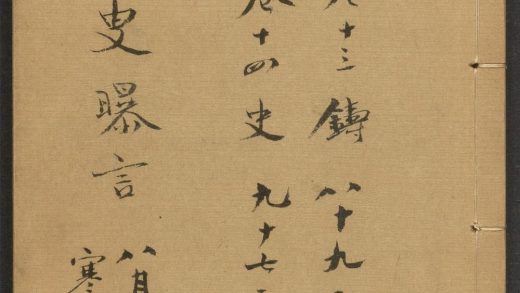 十三 鑄 八十九
卷十四 史 九十七
叟曝言
八月
寒